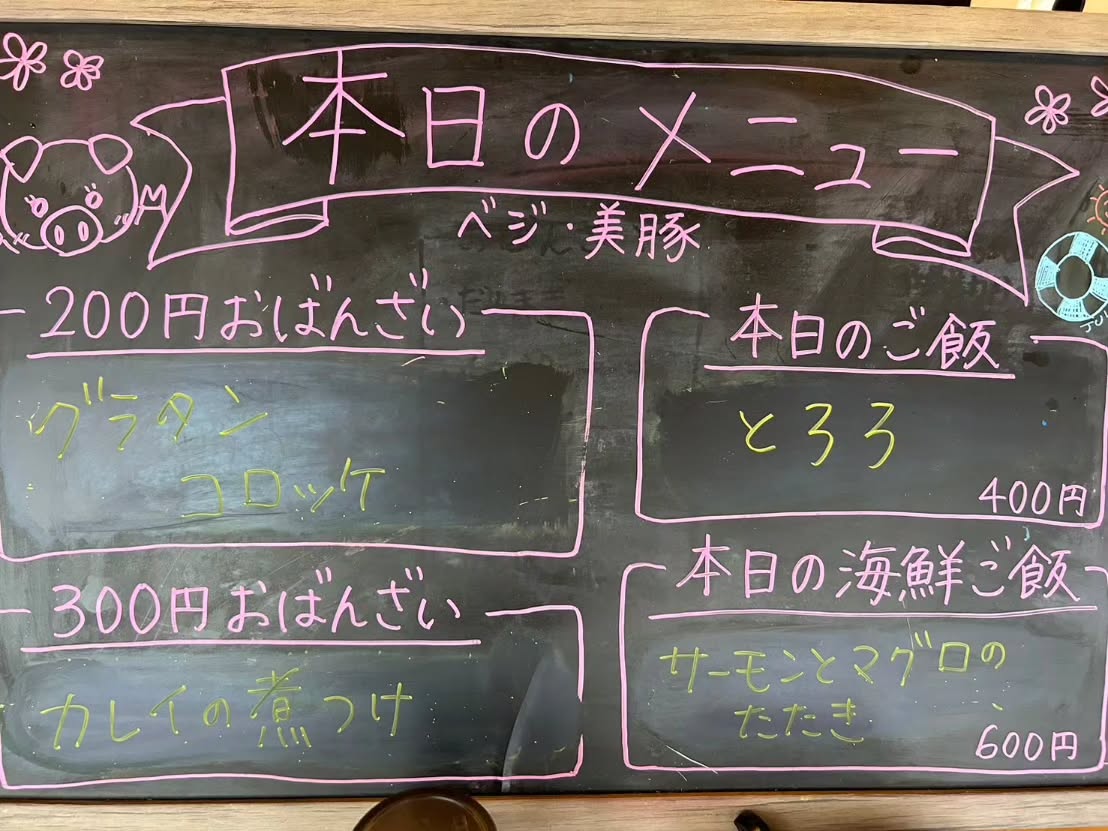 本日のメニュー
ベジ・美豚
200円おばんざい
グラタン
コロッケ
300円おばんざい
カレイの煮つけ
本日のご飯
とろろ
400円
本日の海鮮ご飯
サーモンとマグロの
たたき
600円